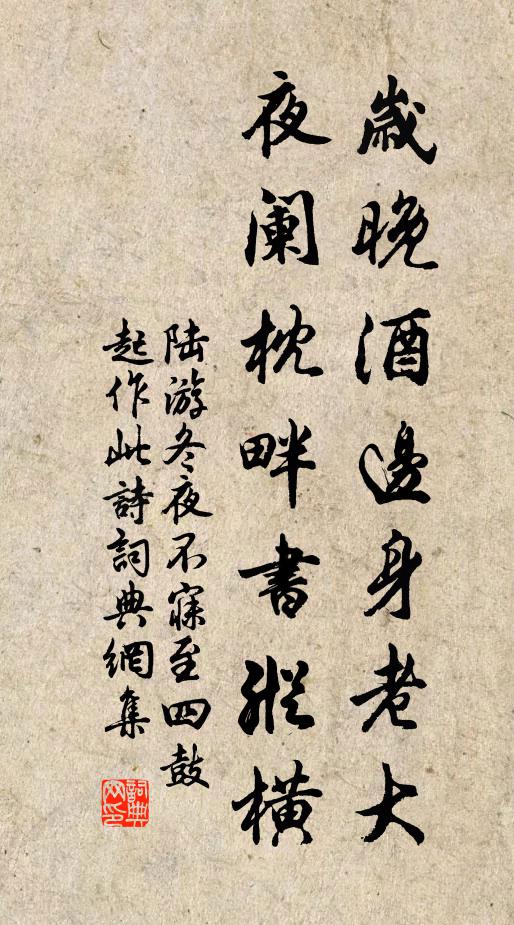 歲晚酒邊身老大
夜闌枕畔書縱橫
陆游冬夜不寐至四鼓
起作此詩詞典網集
詞典
网印